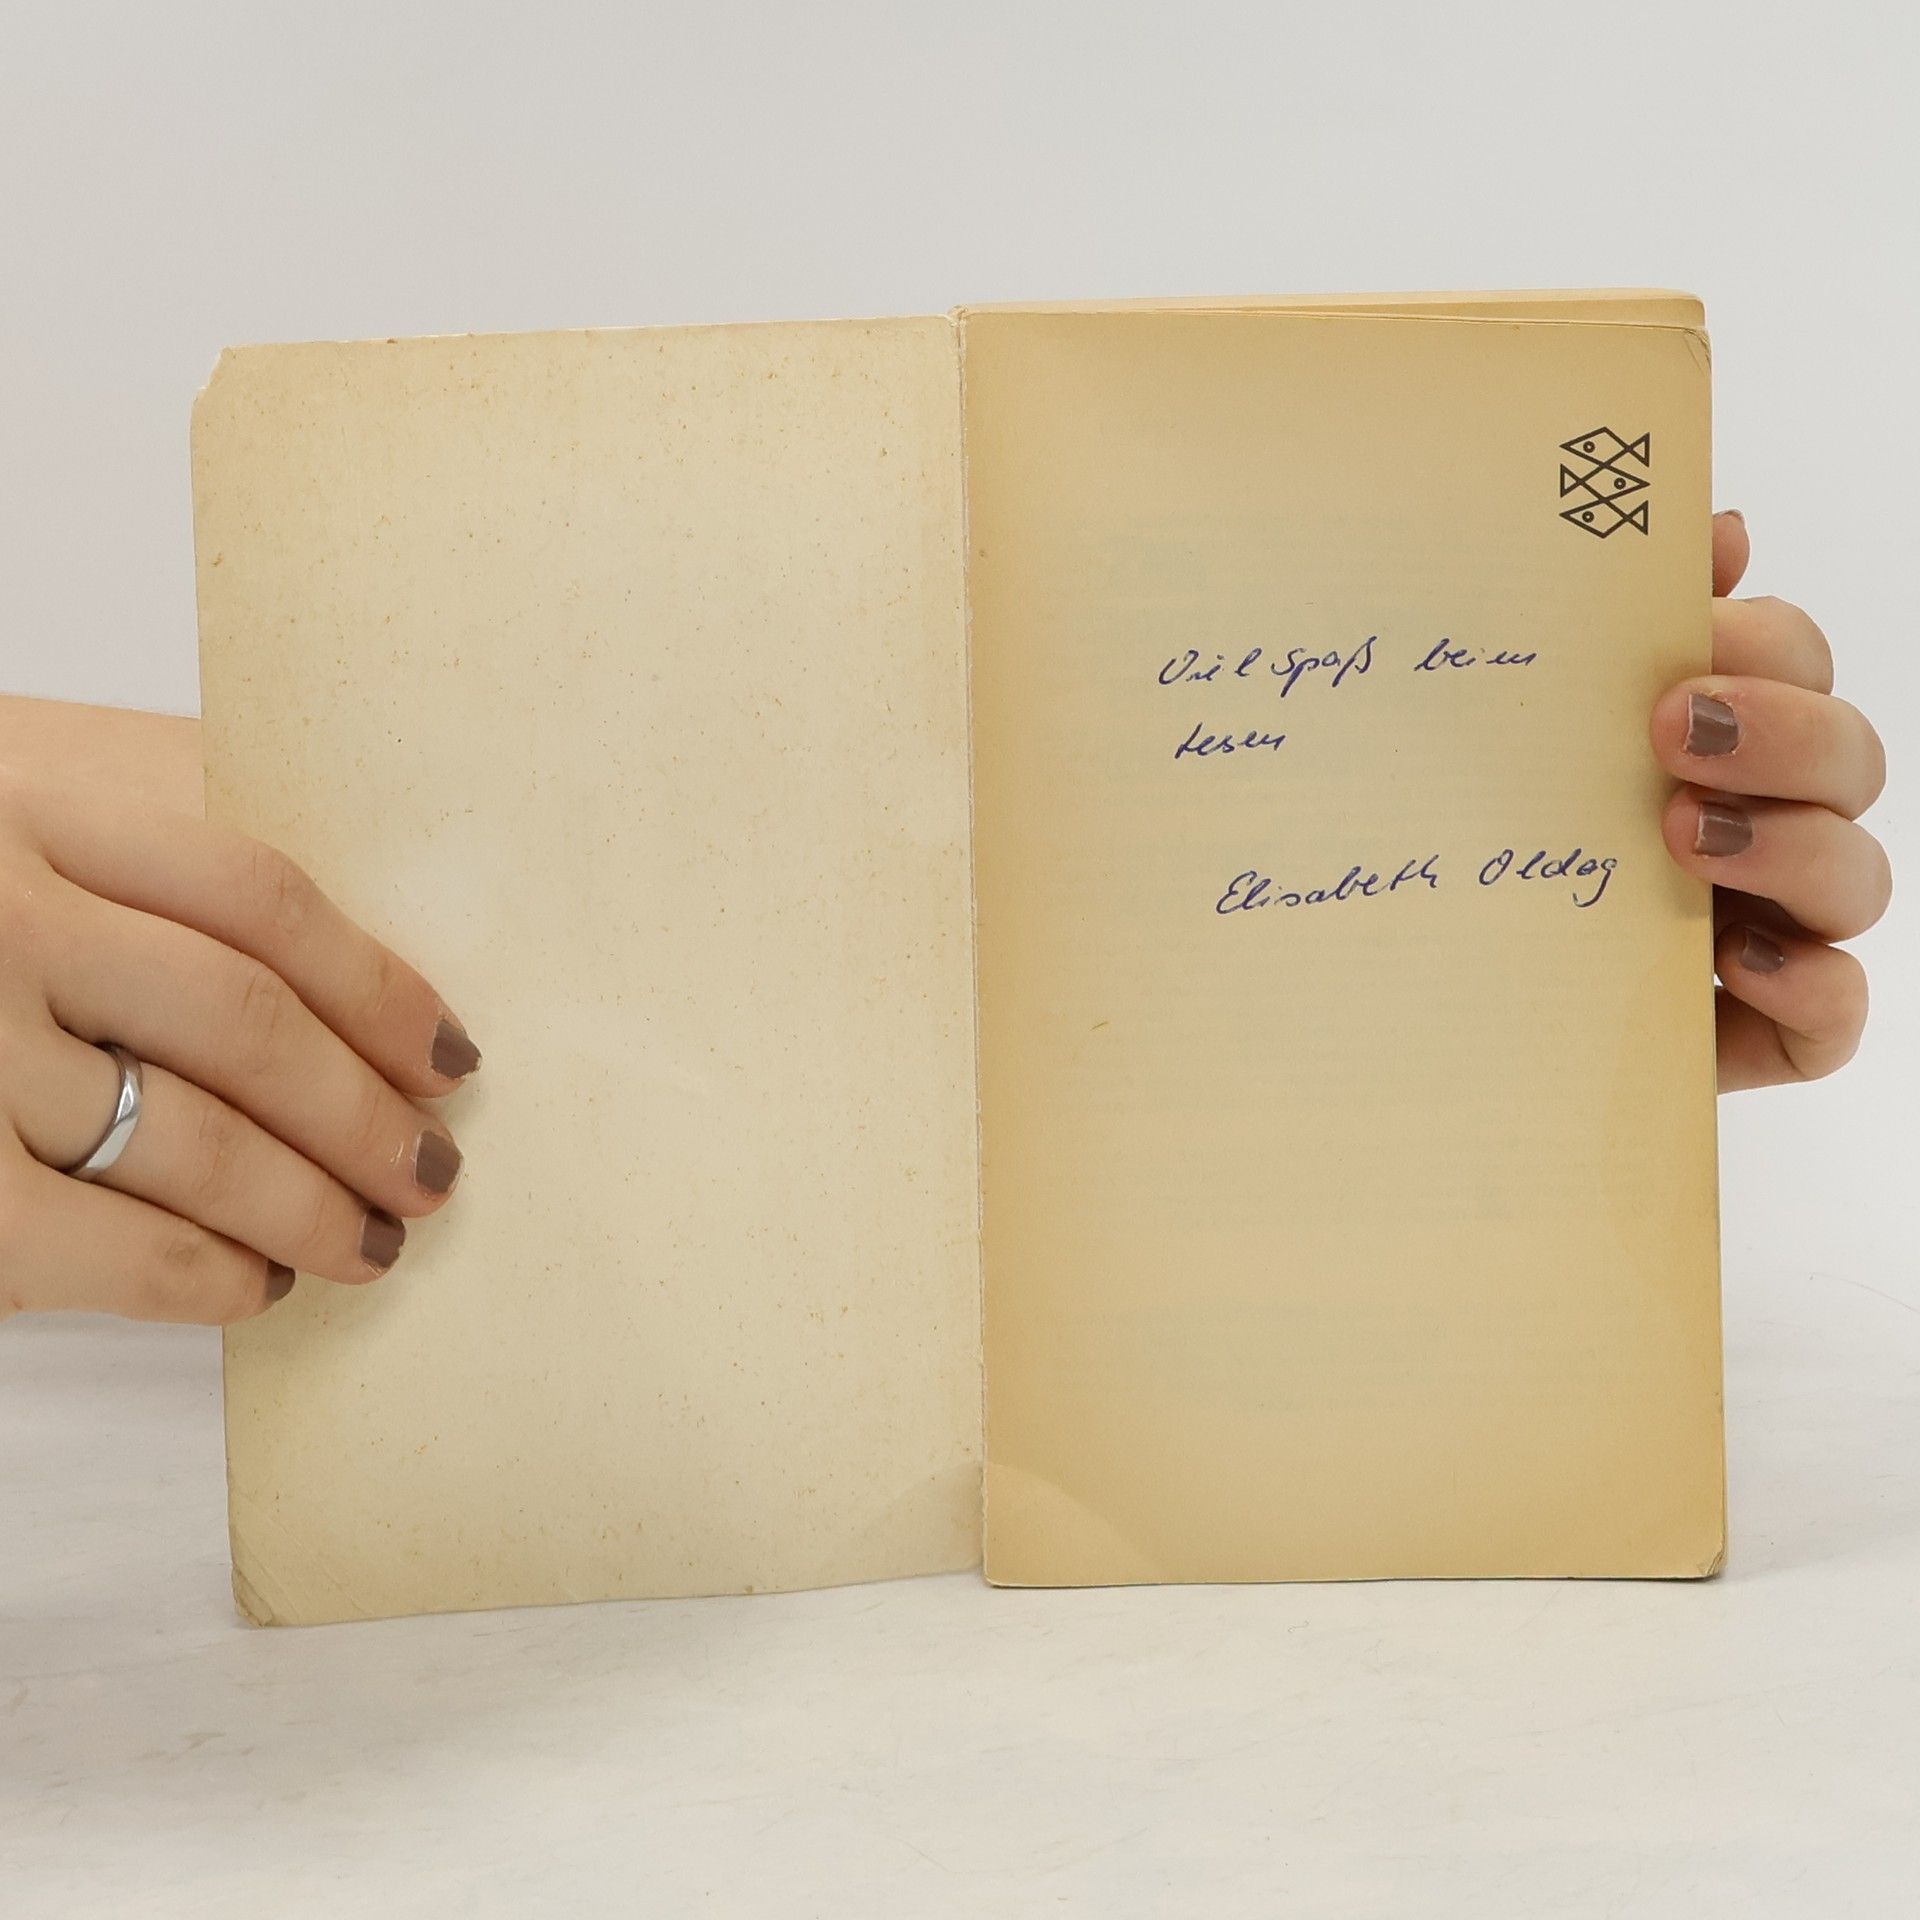 Viel Spaß beim
Lesen
Elisabeth Oldag